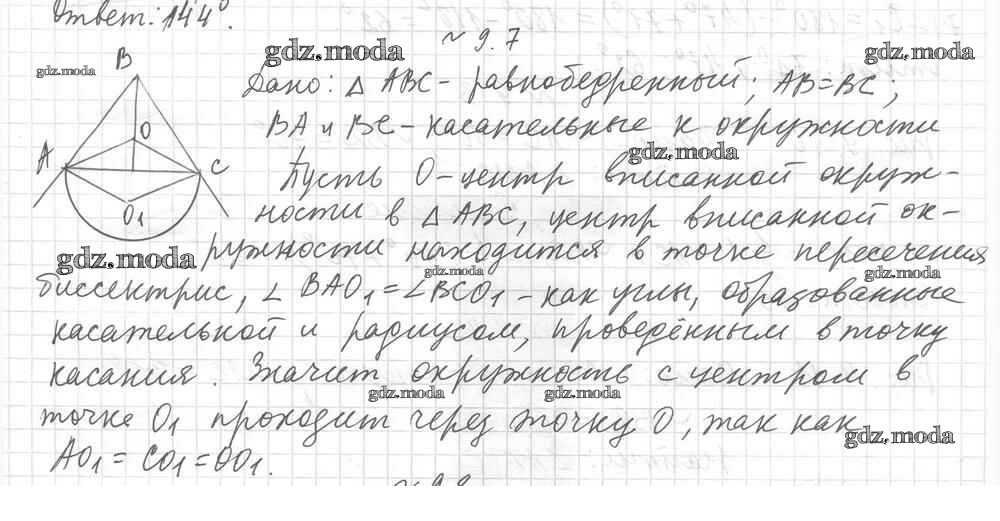 Ответ: 144°.
gdz.moda
~ 9.7
gdz.moda
gdz.moda
B
Дано: △ ABC - равнобедренный; AB=BC;
BA и BC - касательные к окружности
gdz.moda
O
A
C
O1
Пусть O - центр вписанной окруж-
ности в △ ABC, центр вписанной ок-
gdz.moda
ружности находится в точке пересечения
gdz.moda
gdz.moda
биссектрис, ∠ BAO1 = ∠BCO1 - как углы, образованные
касательной и радиусом, проведённым в точку
касания. Значит окружность с центром в
gdz.moda
gdz.moda
точке O1 проходит через точку O, так как
gdz.moda
AO1 = CO1 = OO1.